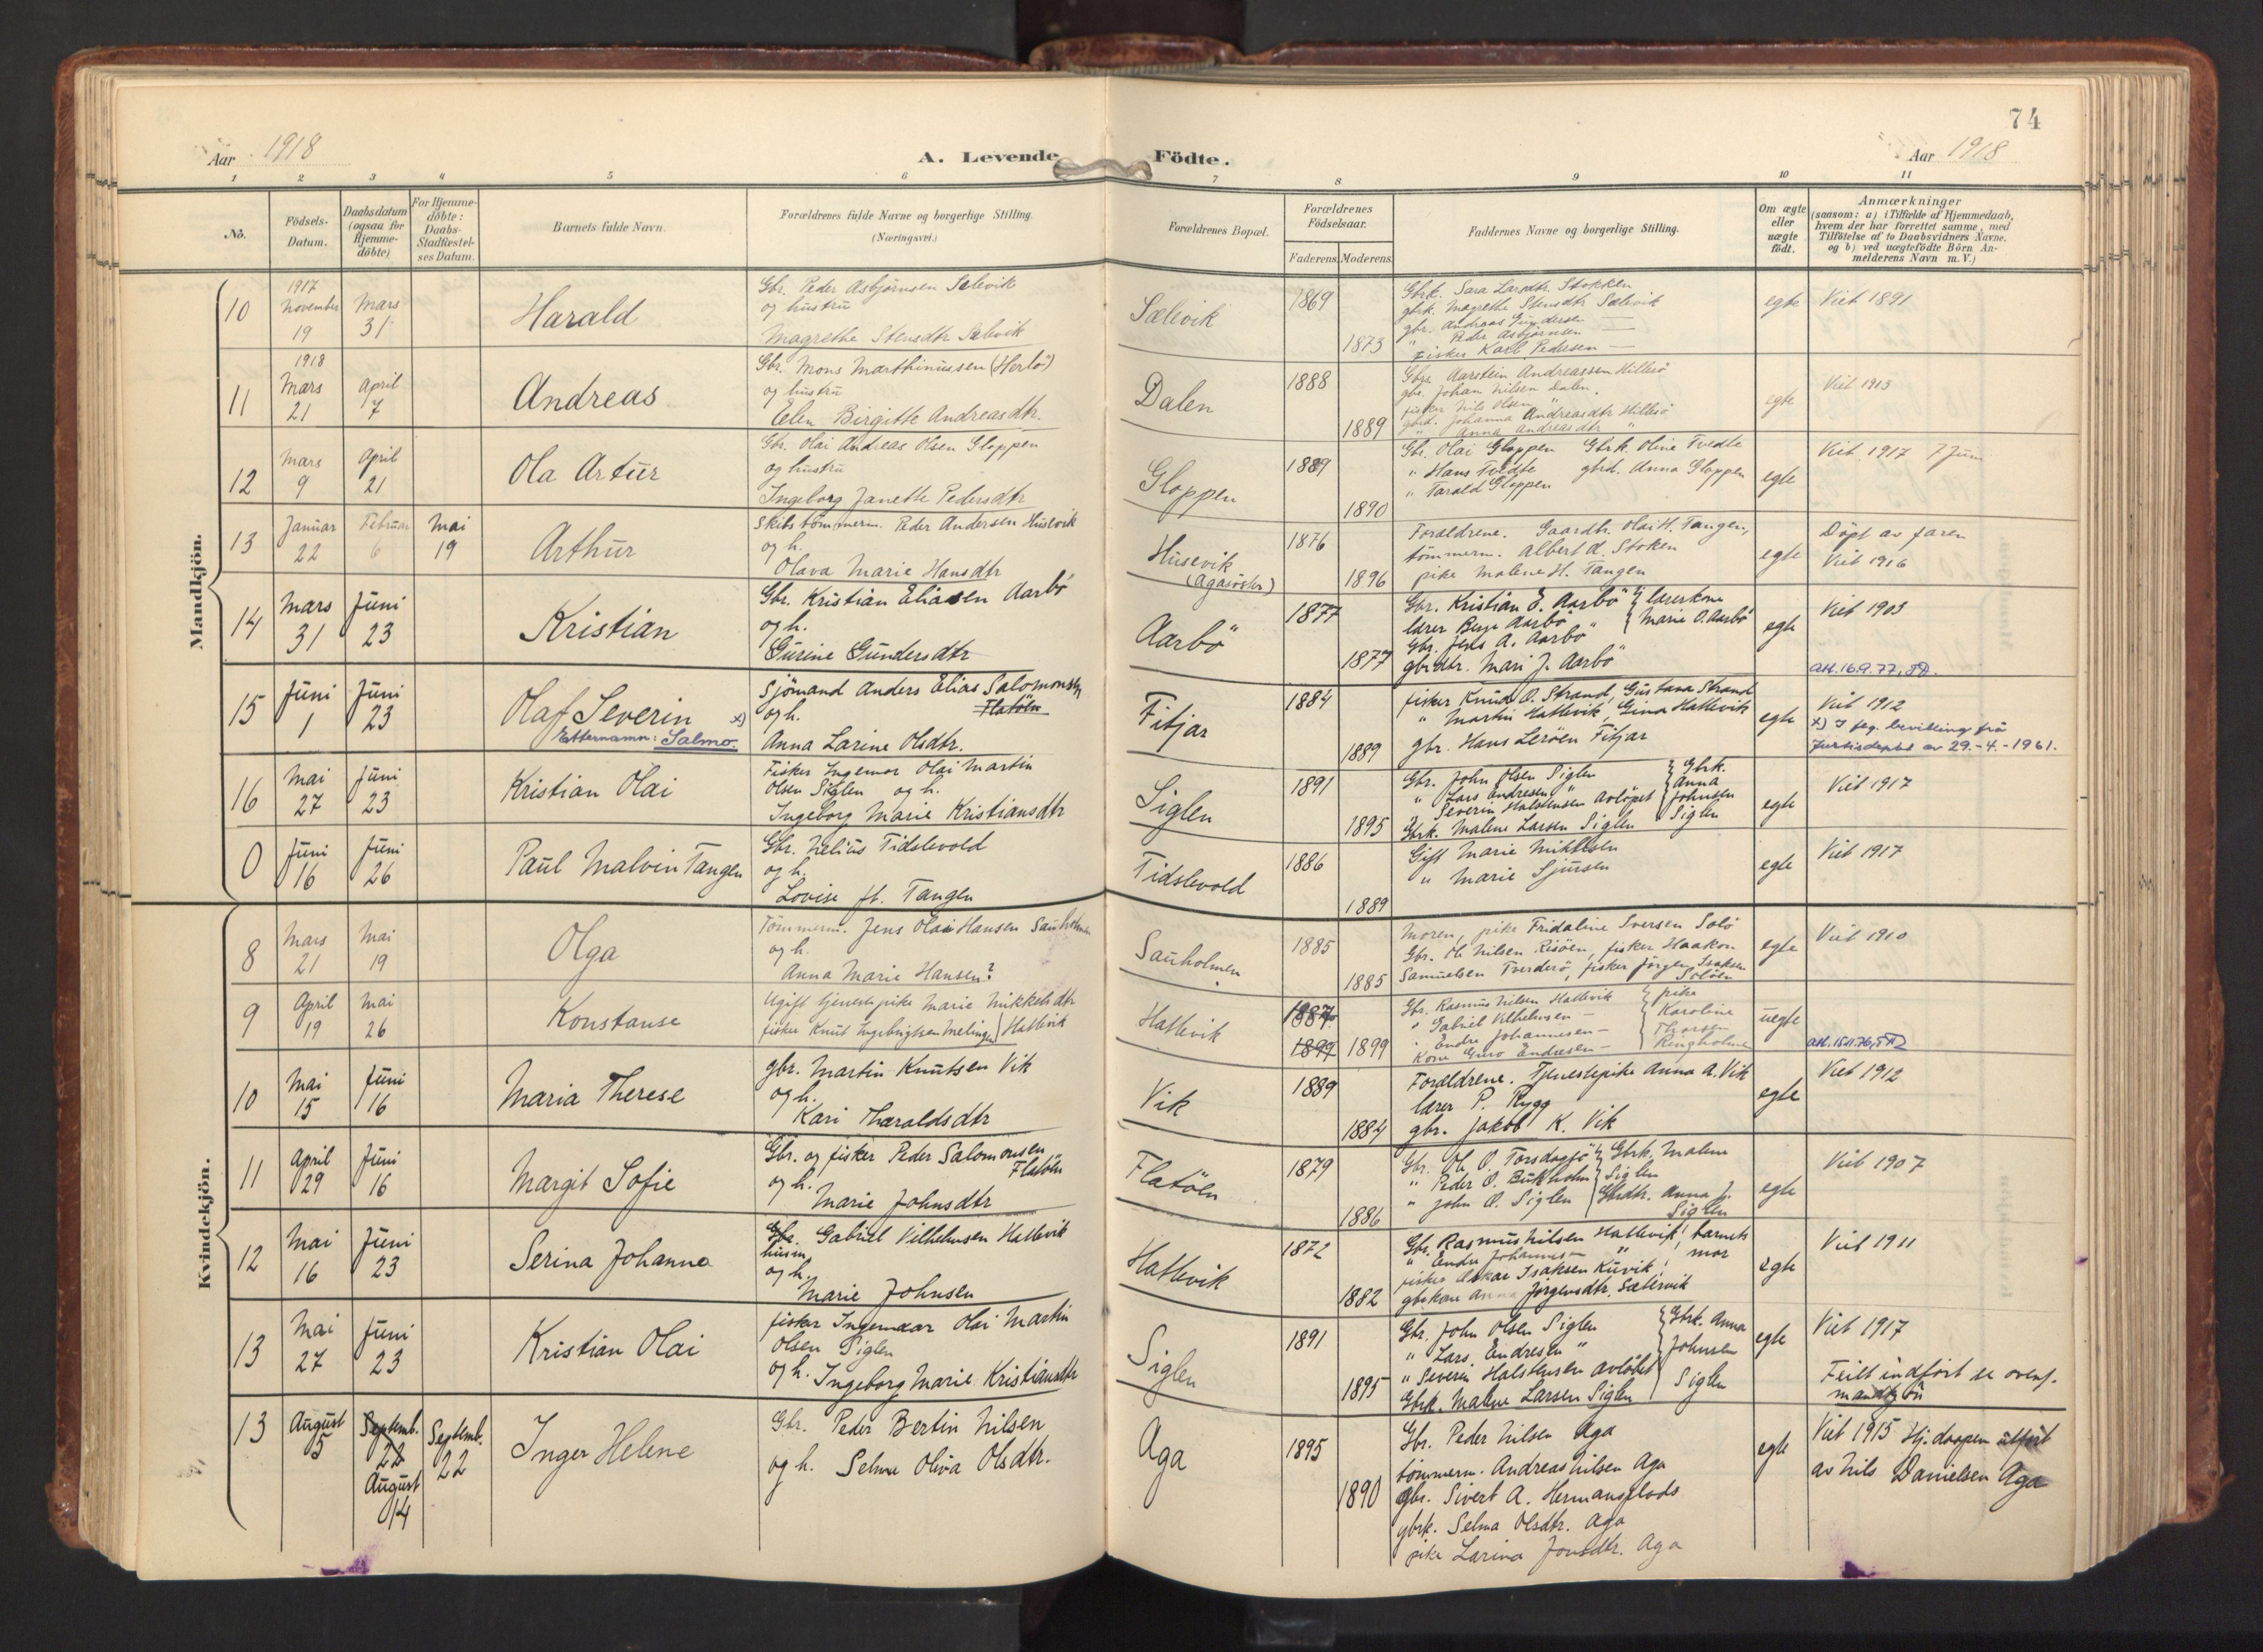 74
Aar 1918
A. Levende
Födte.
Aar 1918
1 2 3 4 5 6 7 8 9 10 11
No.
Födsels-
Datum.
Daabsdatum
(ogsaa for
Hjemme-
döbte)
For Hjemme-
döbte:
Daabs-
Stadfæstel-
ses Datum.
Barnets fulde Navn.
Forældrenes fulde Navne og borgerlige Stilling.
(Næringsvei.)
Forældrenes Bopæl.
Forældrenes
Födselsaar.
Faderens.
Moderens.
Faddernes Navne og borgerlige Stilling.
Om ægte
eller
uægte
födt.
Anmærkninger
(saasom: a) i Tilfælde af Hjemmedaab,
hvem der har forrettet samme, med
Tilföielse af to Daabsvidners Navne.
og b) ved uægtefödte Börn An-
melderens Navn m. V.)
Mandkjön.
10
1917
November
19
Mars
31
Harald
Gbr. Peder Asbjörnsen Sælevik
og hustru
Magrethe Stensdtr Sælevik
Sælevik
1869
1873
Gbrk. Sara Larsdtr. Stokken
gbrk. Magrethe Stensdtr Sælevik
gbr. Andreas Gundersen —
" Peder Asbjörnsen —
fisker Karl Pedersen —
egte
Viet 1891
11
1918
Mars
21
April
7
Andreas
Gbr. Mons Marthinussen (Herlö)
og hustru
Elen Birgitte Andreasdtr.
Dalen
1888
1889
Gbr. Aarstein Andreassen Hillesö
gbr. Johan Nilsen Dalen.
fisker Nils Olsen "
gbrd. Johanna Andreasdtr Hillesö
" Anna Andreasdtr "
egte
Viet 1913
12
Mars
9
April
21
Ola Artur
Gbr. Olai Andreas Olsen Gloppen
og hustru
Ingeborg Janette Pedersdtr
Gloppen
1889
1890
Gbr. Olai Gloppen Gbrk. Oline Tvedte
" Hans Tvedte gbrd. Anna Gloppen
" Tarald Gloppen
egte
Viet 1917 7 Juni
13
Januar
22
Februar
6
Mai
19
Arthur
Skibstömmerm. Peder Andersen Husevik
og h.
Olava Marie Hansdtr
Husevik
(Agaröster)
1876
1896
Foraldrene. Gaardbr. Olai H. Tangen,
tömmerm. Albert A. Stoken
pike Malene H. Tangen
egte
Döpt av faren
Viet 1916
14
Mars
31
Juni
23
Kristian
Gbr. Kristian Eliasen Aarbö
og h.
Gurine Gundersdtr
Aarbö
1877
1877
Gbr. Kristian E. Aarbö } lærerkone
lærer Berge Aarbö " } Marie O. Aarbö
Gbr. Jens A. Aarbö
gbrdtr. Mari J. Aarbö
egte
Viet 1903
att. 16.9.77,
15
Juni
1
Juni
23
Olaf Severin x)
Etternamn: Salmo.
Sjömand Anders Elias Salomonsen
og h. Flatöen
Anna Larine Olsdtr.
Fitjar
1884
1889
fisker Knud O. Strand, Gustava Strand
" Martin Hatlevik, Gina Hatlevik
gbr. Hans Leröen Fitjar
egte
Viet 1912
x) I flg. bevilling frå
Justisdeptet av 29.-4.-1961.
16
Mai
27
Juni
23
Kristian Olai
Fisker Ingemor Olai Martin
Olsen Siglen og h.
Ingeborg Marie Kristiansdtr
Siglen
1891
1895
Gbr. John Olsen Siglen } Gbrk.
" Lars Andresen " } Anna
" Severin Halstensen Avlöpet } Johnsen
Gbrk. Malene Larsen Siglen } Siglen
egte
Viet 1917
0
Juni
16
Juni
26
Paul Malvin Tangen
Gbr. Nelius Tidslevold
og h.
Lovise ft. Tangen
Tidslevold
1886
1889
Gift Marie Mikkelsen
" Marie Sjursen
egte
Viet 1917
Kvindekjön.
8
Mars
21
Mai
19
Olga
Tömmerm. Jens Olai Hansen Sauholmen
og h.
Anna Marie Hansen?
Sauholmen
1885
1885
Moren, pike Fridaline Iversen Solö
Gbr. Ole Nilsen Risöen, fisker Haakon
Samuelsen Tverderö, fisker Jörgen Isaksen
Solöen
egte
Viet 1910
9
April
19
Mai
26
Konstanse
Ugift tjenestepike Marie Mikkelsdtr
fisker Knut Ingebrigtsen Melingen } Hatlevik
Hatlevik
1887
1899 1899
Gbr. Rasmus Nilsen Hatlevik } pike
" Gabriel Vilhelmsen — } Karoline
" Endre Johannesen — } Thorsen
Kone Guro Endresen — } Ringholmen
uegte
att. 15.11.76,
10
Mai
15
Juni
16
Maria Therese
gbr. Martin Knutsen Vik
og h.
Kari Tharaldsdtr
Vik
1889
1884
Foraldrene. Tjenestepike Anna A. Vik
lærer P. Rygg
gbr. Jakob K. Vik
egte
Viet 1912
11
April
29
Juni
16
Margit Sofie
Gbr. og fisker Peder Salomonsen
og h. Flatöen
Marie Johnsdtr
Flatöen
1879
1886
Gbr. Ole O. Torsdagsjö } Gbrk. Malene
" Peder O. Bukholm } Siglen
" John O. Siglen { Gbrdtr. Anna J.
Siglen
egte
Viet 1907
12
Mai
16
Juni
23
Serina Johanna
Gbr. Gabriel Vilhelmsen Hatlevik
husm.
og h.
Marie Johnsen
Hatlevik
1872
1882
Gbr. Rasmus Nilsen Hatlevik, barnets
" Endre Johannesen " mor
fisker Oskar Isaksen Kuvik
gbrkone Anna Jörgensdtr. Sætervik
egte
Viet 1911
13
Mai
27
Juni
23
Kristian Olai
fisker Ingemaar Olai Martin
Olsen Siglen
og h. Ingeborg Marie Kristiansdtr
Siglen
1891
1895
Gbr. John Olsen Siglen } Gbrk. Anna
" Lars Endresen " } Johnsen
" Severin Halstensen Avlöbet } Siglen
Gbrk. Malene Larsen Siglen
egte
Viet 1917
Feilt indfört se ovenf.
mandkjön
13
August
5
Septemb.
22
August
14
Septemb.
22
Inger Helene
Gbr. Peder Bertin Nilsen
og h. Selma Oliva Olsdtr.
Aga
1895
1890
Gbr. Peder Nilsen Aga
tömmerm. Andreas Nilsen Aga
gbr. Sivert A. Hermansplads
gbrk. Selma Olsdtr. Aga
pike Larina Jonsdtr. Aga
egte
Viet 1915 Hj. daapen utfört
av Nils Danielsen Aga